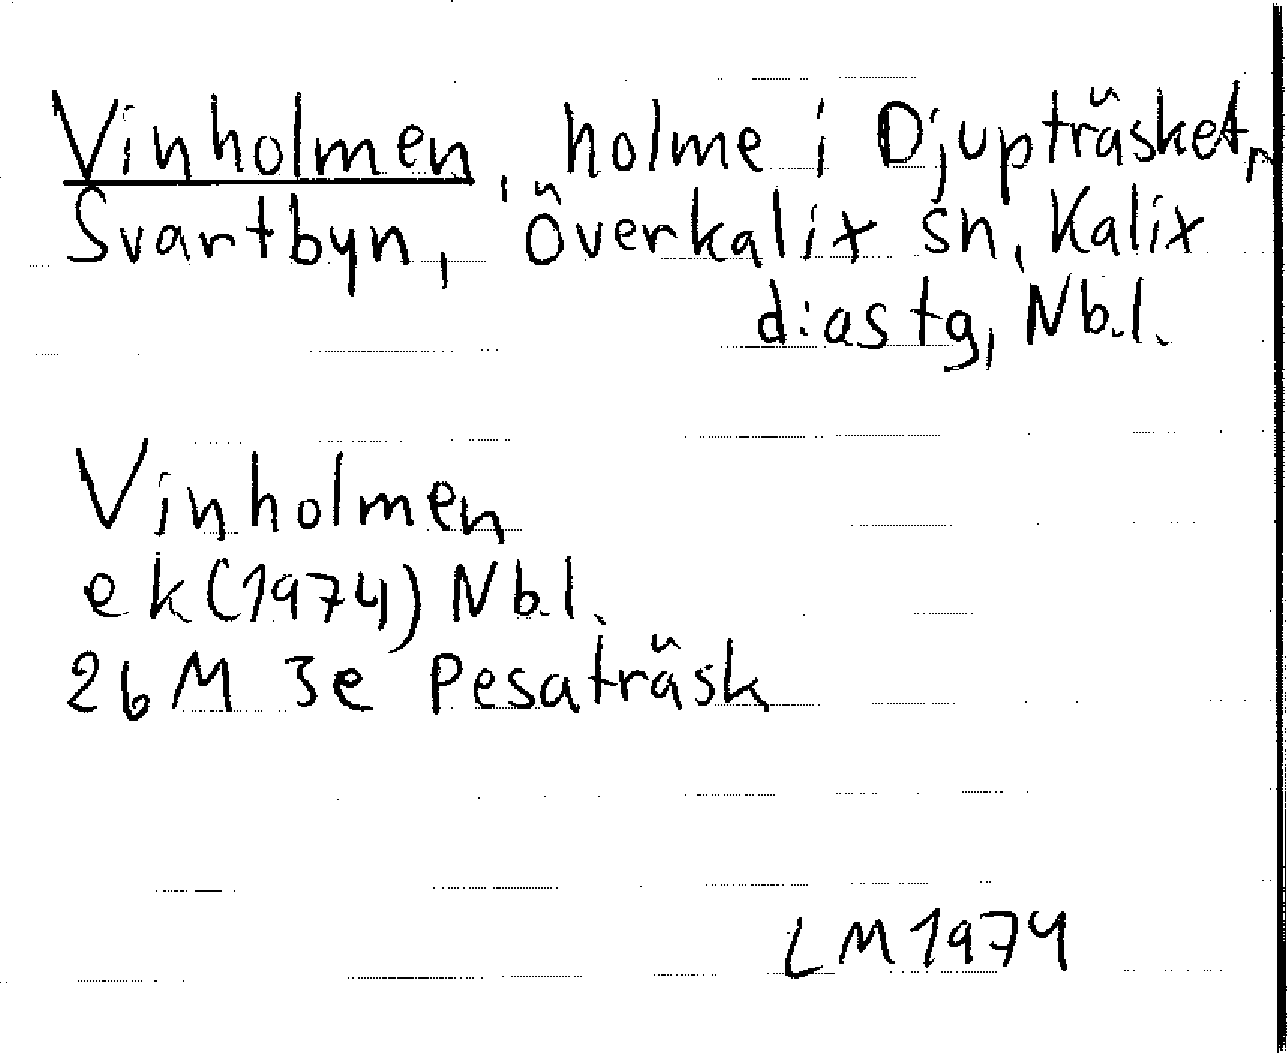 Vinholmen, holme i Djupträsket,
Svartbyn, Överkalix sn, Kalix
d:as tg, Nb.l.
Vinholmen
ek (1974) Nb.l.
26 M 3e Pesaträsk
LM 1974